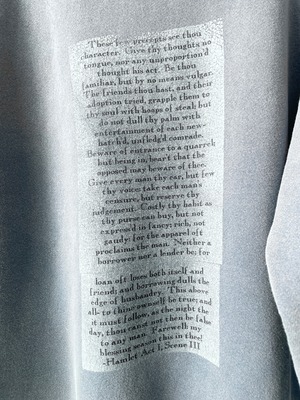 These few precepts see thou
character. Give thy thoughts no
tongue, nor any unproportion'd
thought his act. Be thou
familiar, but by no means vulgar.
The friends thou hast, and their
adoption tried, grapple them to
thy soul with hoops of steel; but
do not dull thy palm with
entertainment of each new-
hatch'd, unfledg'd comrade.
Beware of entrance to a quarrel;
but being in, bear't that the
opposed may beware of thee.
Give every man thy ear, but few
thy voice; take each man's
censure, but reserve thy
judgement. Costly thy habit as
thy purse can buy, but not
express'd in fancy; rich, not
gaudy; for the apparel oft
proclaims the man. Neither a
borrower nor a lender be; for
loan oft loses both itself and
friend; and borrowing dulls the
edge of husbandry. This above
all- to thine ownself be true; and
it must follow, as the night the
day, thou canst not then be false
to any man. Farewell; my
blessing season this in thee!
-Hamlet Act I, Scene III